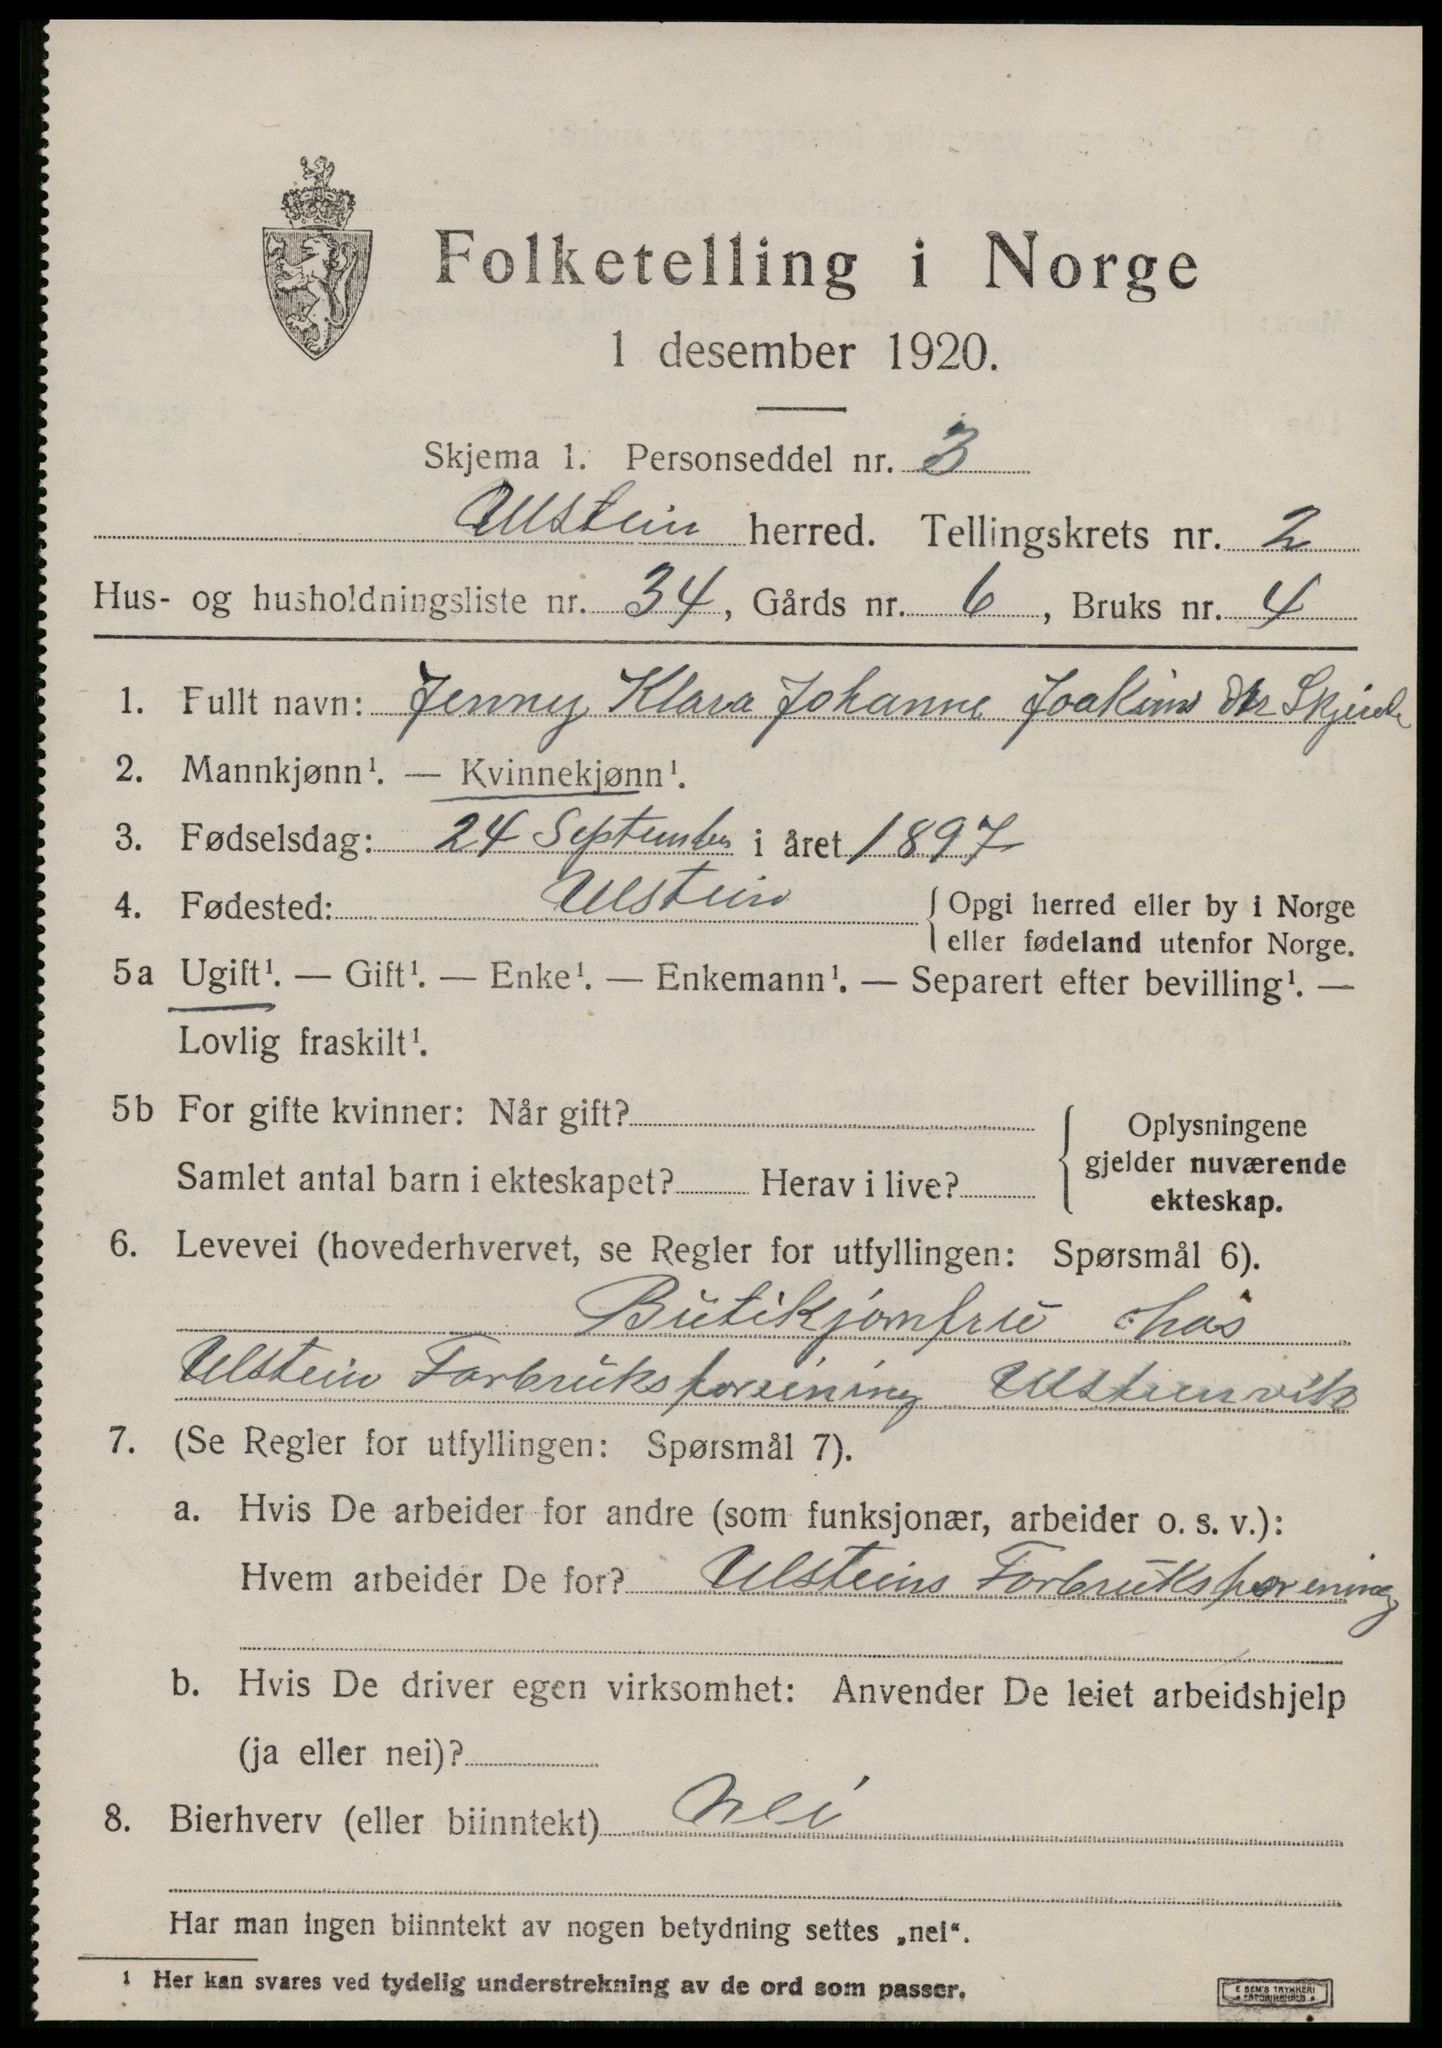 Folketelling i Norge
1 desember 1920.
Skjema 1. Personseddel nr. 3
Ulstein herred. Tellingskrets nr. 2
Hus- og husholdningsliste nr. 34, Gårds nr. 6, Bruks nr. 4
1. Fullt navn: Jenny Klara Johanne Joakims dtr
2. Mannkjønn¹. — Kvinnekjønn¹.
3. Fødselsdag: 24 September i året 1897
4. Fødested: Ulstein { Opgi herred eller by i Norge
eller fødeland utenfor Norge.
5a Ugift¹. — Gift¹. — Enke¹. — Enkemann¹. — Separert efter bevilling¹. —
Lovlig fraskilt¹.
5b For gifte kvinner: Når gift?
Samlet antal barn i ekteskapet? Herav i live?
{ Oplysningene
gjelder nuværende
ekteskap.
6. Levevei (hovederhvervet, se Regler for utfyllingen: Spørsmål 6).
Butikjomfru hos
Ulstein Forbruksforening Ulsteinvik
7. (Se Regler for utfyllingen: Spørsmål 7).
a. Hvis De arbeider for andre (som funksjonær, arbeider o. s. v.):
Hvem arbeider De for? Ulsteins Forbruksforening
b. Hvis De driver egen virksomhet: Anvender De leiet arbeidshjelp
(ja eller nei)?
8. Bierhverv (eller biinntekt) Nei
Har man ingen biinntekt av nogen betydning settes „nei“.
¹ Her kan svares ved tydelig understrekning av de ord som passer.
E SEM'S TRYKKERI